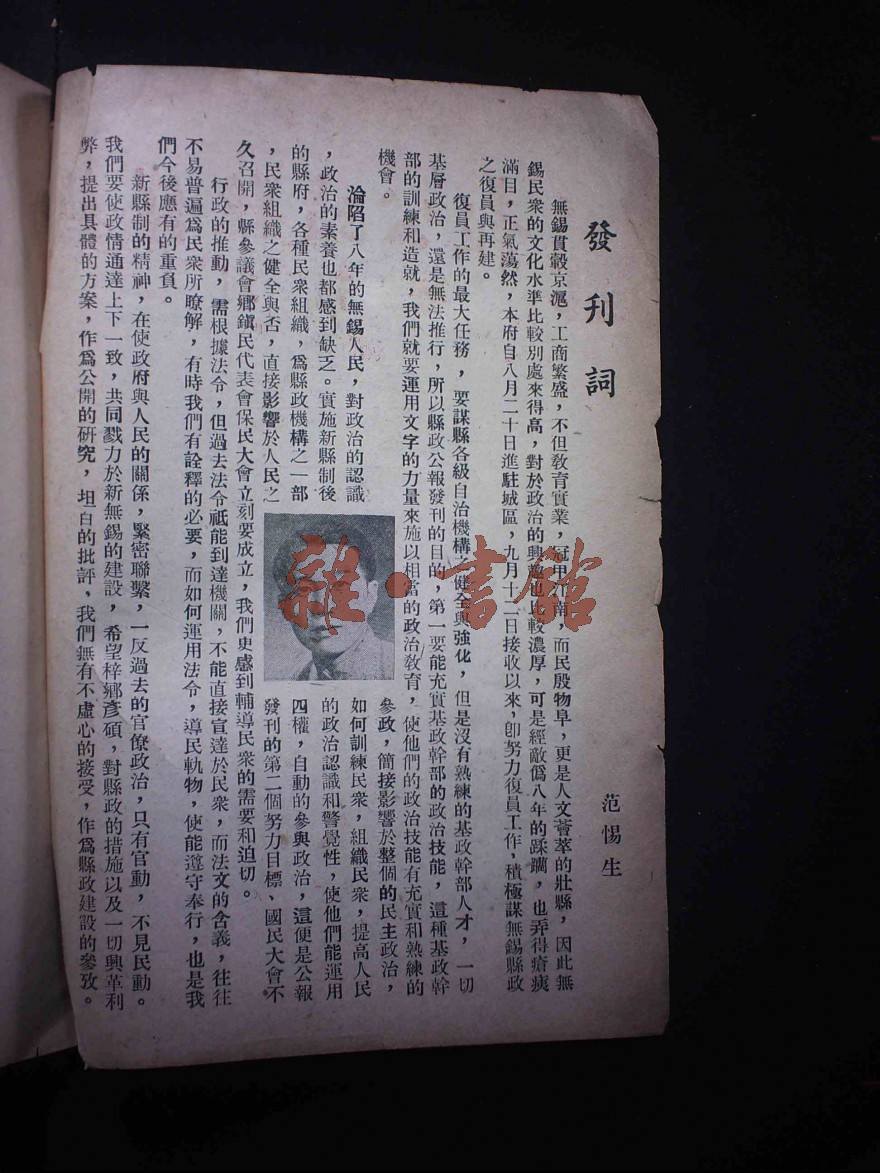 發刊詞
范惕生
無錫貫轂京滬，工商繁盛，不但敎育實業，冠甲江南，而民殷物阜，更是人文薈萃的壯縣，因此無
錫民衆的文化水準比較別處來得高，對於政治的興趣也比較濃厚，可是經敵僞八年的蹂躪，也弄得瘡痍
滿目，正氣蕩然，本府自八月二十日進駐城區，九月十二日接收以來，卽努力復員工作，積極謀無錫縣政
之復員與再建。
復員工作的最大任務，要謀縣各級自治機構之健全與強化，但是沒有熟練的基政幹部人才，一切
基層政治，還是無法推行，所以縣政公報發刊的目的，第一要能充實基政幹部的政治技能，這種基政幹
部的訓練和造就，我們就要運用文字的力量來施以相當的政治敎育，使他們的政治技能有充實和熟練的
機會。
淪陷了八年的無錫人民，對政治的認識
，政治的素養也都感到缺乏。實施新縣制後
的縣府，各種民衆組織，爲縣政機構之一部
，民衆組織之健全與否，直接影響於人民之
參政，簡接影響於整個的民主政治，
如何訓練民衆，組織民衆，提高人民
的政治認識和警覺性，使他們能運用
四權，自動的參與政治，這便是公報
發刊的第二個努力目標、國民大會不
久召開，縣參議會鄉鎭民代表會保民大會立刻要成立，我們更感到輔導民衆的需要和迫切。
行政的推動，需根據法令，但過去法令祗能到達機關，不能直接宣達於民衆，而法文的含義，往往
不易普遍爲民衆所瞭解，有時我們有詮釋的必要，而如何運用法令，導民軌物，使能遵守奉行，也是我
們今後應有的重負。
新縣制的精神，在使政府與人民的關係，緊密聯繫，一反過去的官僚政治，只有官動，不見民動。
我們要使政情通達上下一致，共同戮力於新無錫的建設，希望梓鄉彥碩，對縣政的措施以及一切興革利
弊，提出具體的方案，作爲公開的硏究，坦白的批評，我們無有不虛心的接受，作爲縣政建設的參攷。
雜·書館